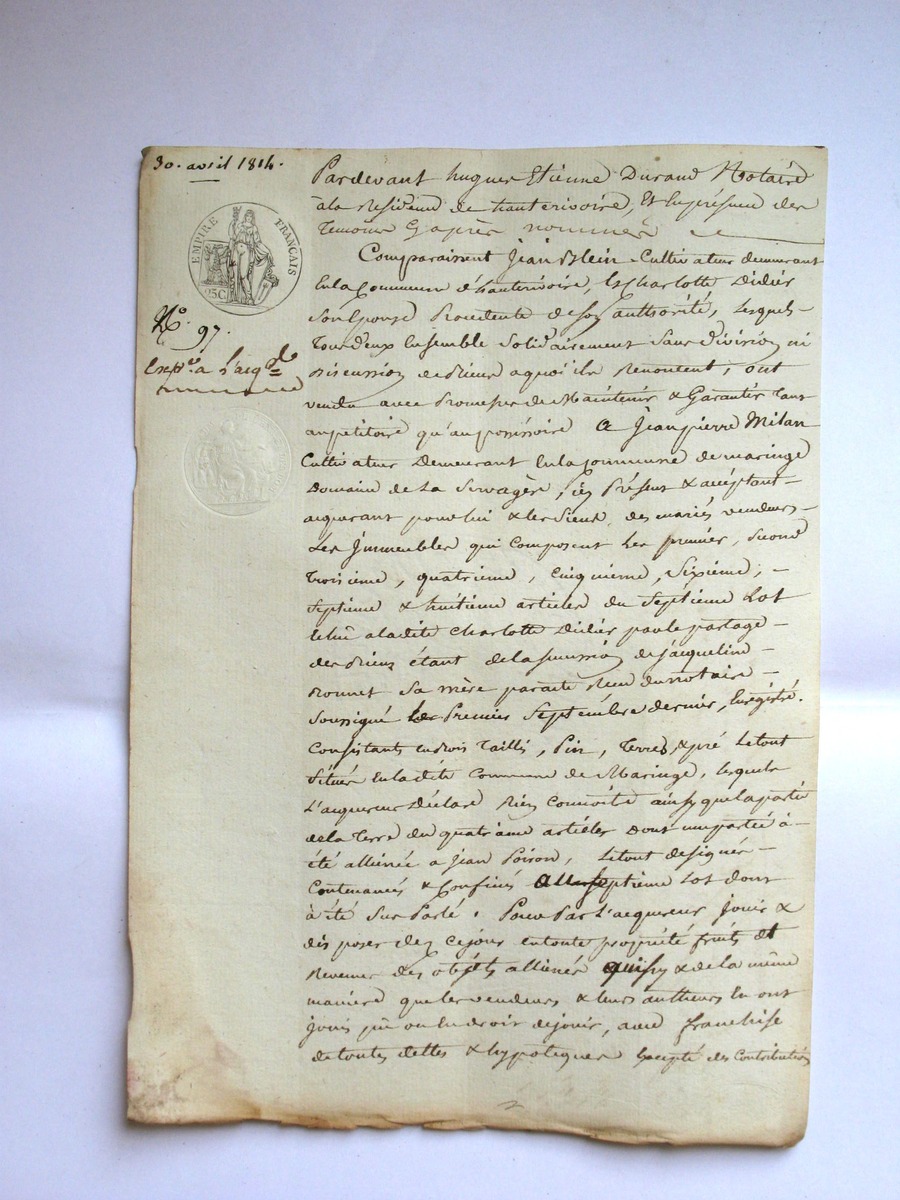 30. avril 1814.
EMPIRE FRANÇAIS
25C
N.º 97.
Exp.on a l'acq.r
Pardevant hugues Etienne Durand Notaire
à la Residence de hauterivoire, Et En présence des
Temoins Cy après nommés
Comparaissent Jean Blein Cultivateur demeurant
En la Commune d'hauterivoire, & Charlotte Didier
Son Epouse Procedente de son authorité, Lesquels
Tous deux Ensemble Solidairement Sans division ni
discussion de Biens a quoi ils Renoncent, ont
vendu avec Promesse de Maintenir & Garantir tant
au petitoire qu'au possessoire A Jean pierre Milan
Cultivateur Demeurant En la Commune de maringe
Domaine de La , ici Présent & acceptant
acquerant pour lui & les Siens, des mariés vendeurs
Les Immeubles qui Composent Les premier, Second
Troisieme, quatrieme, Cinquieme, Sixieme,
Septieme & huitieme articles du Septieme Lot
Echu a la dite Charlotte Didier par le partage
des Biens étant de la succession de Jacqueline
Bonnet Sa mère par acte Reçu du notaire
Soussigné Le Premier Septembre dernier, Enregistré.
Consistants en Bois Taillis, Pin, Terres, & pré Le tout
Situés En la dite Commune de Maringe, Lesquels
L'acquereur Déclare Bien Connoitre ainsy que la partie
de la Terre du quatrième articles Dont une partie à
été alliénée a Jean Poiron, Le tout designés
Contenances & Confinés au Septieme Lot dont
à été Sus Parlé. Pour Par L'acquereur Jouir &
disposer dez Ce jour en toute propriété fruits et
Revenus des objets alliénés ainsy & de la même
maniere que les vendeurs & leurs autheurs En ont
joui pû ou En droit de jouir, avec franchise
de toutes dettes & hypoteques Excepté des Contributions